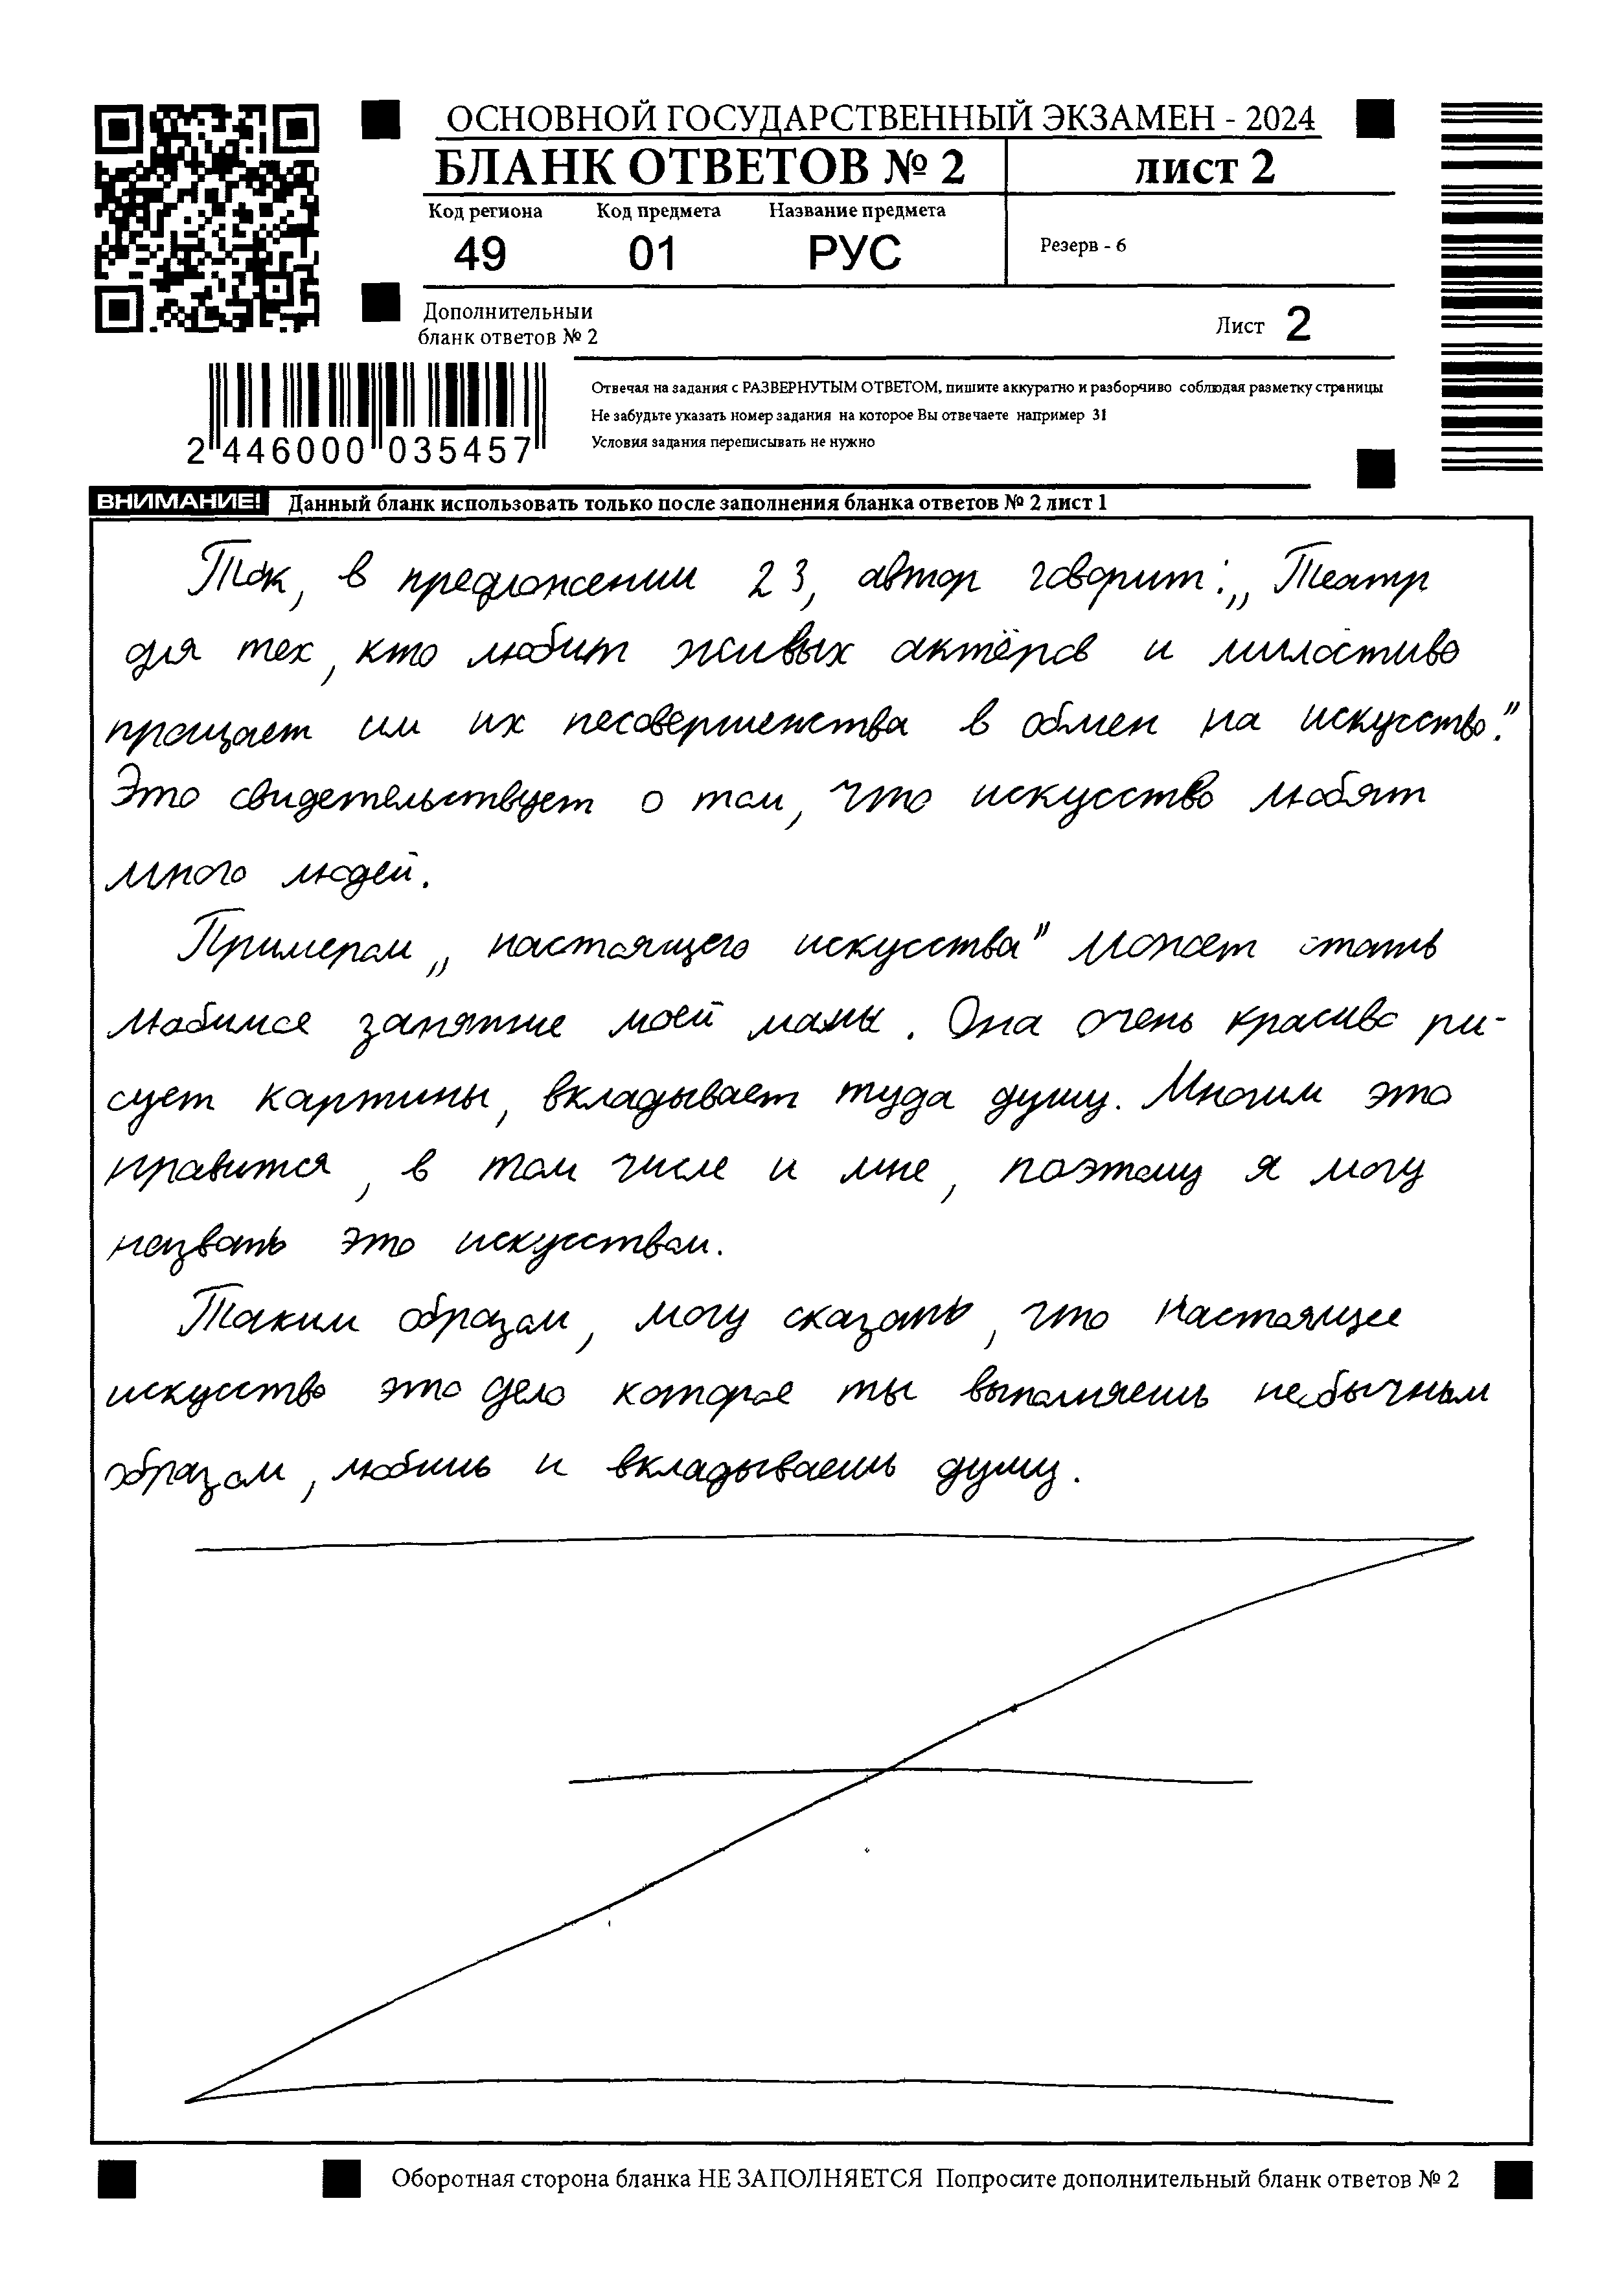 ОСНОВНОЙ ГОСУДАРСТВЕННЫЙ ЭКЗАМЕН - 2024
БЛАНК ОТВЕТОВ № 2
лист 2
Код региона Код предмета Название предмета
49 01 РУС
Резерв - 6
Дополнительный
бланк ответов № 2
Лист 2
2 446000 035457
Отвечая на задания с РАЗВЕРНУТЫМ ОТВЕТОМ, пишите аккуратно и разборчиво соблюдая разметку страницы
Не забудьте указать номер задания на которое Вы отвечаете например 31
Условия задания переписывать не нужно
ВНИМАНИЕ! Данный бланк использовать только после заполнения бланка ответов № 2 лист 1
Так, в предложении 23, автор говорит: „Театр
для тех, кто любит живых актёров и милостиво
прощает им их несовершенства в обмен на искусство."
Это свидетельствует о том, что искусство любят
много людей.
Примером „настоящего искусства" может стать
любимое занятие моей мамы. Она очень красиво ри-
сует картины, вкладывает туда душу. Многим это
нравится, в том числе и мне, поэтому я могу
назвать это искусством.
Таким образом, могу сказать, что настоящее
искусство это дело которое ты выполняешь необычным
образом, любишь и вкладываешь душу.
Оборотная сторона бланка НЕ ЗАПОЛНЯЕТСЯ Попросите дополнительный бланк ответов № 2